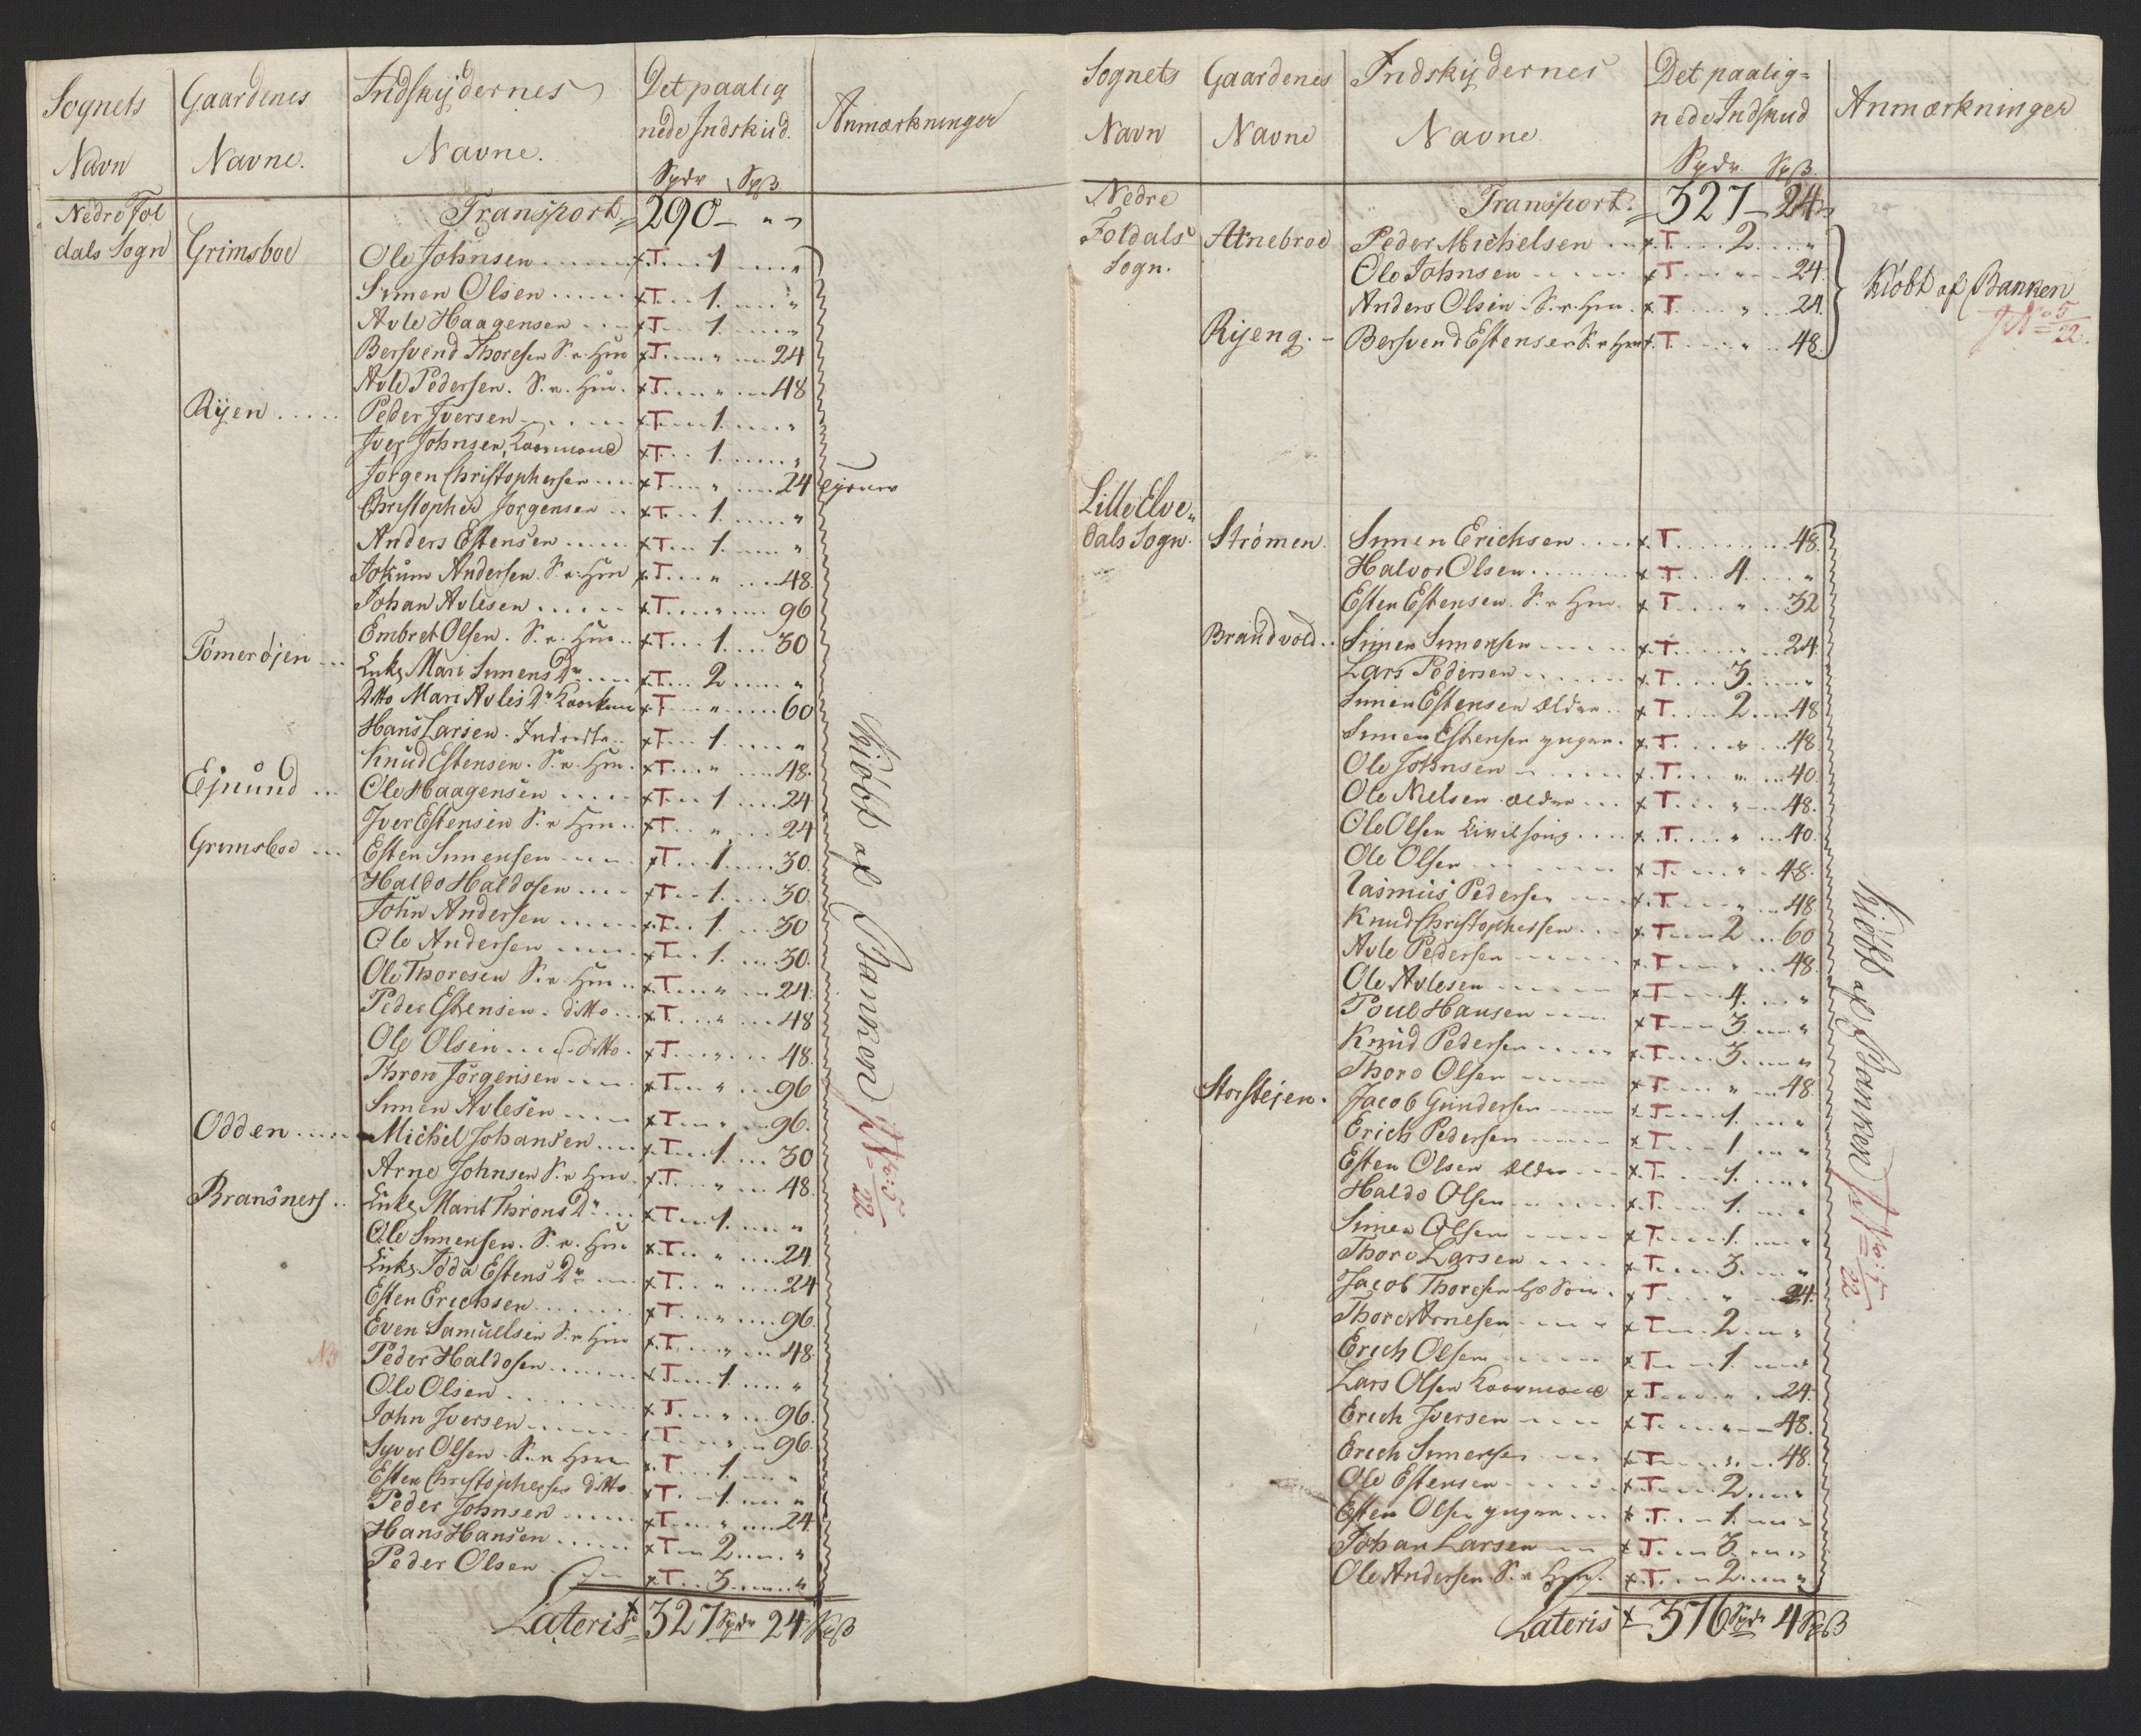 Sognets Navn | Gaardenes Navne. | Indskydernes Navne. | Det paalig nede Indskud. Spdr Spß | Anmærkninger
Nedre Fol dals Sogn | Transport. 290 „
Grimsboe | Ole Johnsen T 1 „
Simen Olsen T 1 „
Avle Haagensen T 1 „
Bersvend Thoresen S. v. Hm T „ 24
Avle Pedersen. S. v. Hm. T „ 48
Ryen | Peder Iversen T 1 „
Iver Johnsen, Kaarmand T 1 „
Jørgen Christophersen T „ 24
Christopher Jørgensen T 1 „
Anders Estensen T 1 „
Jokum Andersen. S. v. Hm T „ 48
Johan Avlesen T „ 96
Embret Olsen. S. v. Hm T 1 30
Tømerøjen | Enke Mari Simens Dr T 2 „
Ditto Mari Avles Dr T „ 60
Hans Larsen. T 1 „
Knud Estensen. S. v. Hm. T „ 48.
Ejnund | Ole Haagensen T 1 24
Iver Estensen S. v Hm T „ 24
Grimsboe | Esten Simensen T 1 30.
Haldo Haldosen T 1. 30.
John Andersen T 1. 30
Ole Andersen T 1. 30.
Ole Thoresen S. v. Hm T „ 24.
Peder Estensen. ditto T „ 48
Ole Olsen ditto. T „ 48.
Thron Jørgensen T „ 96
Simen Avlesen T „ 96.
Odden | Michel Johansen T 1. 30
Arne Johnsen S. v Hm. T „ 48.
Bransness | Enke Marit Throns Dr T 1. „
Ole Simensen. S. v. Hm T „ 24
Enke Todda Estens Dr T „ 24
Esten Erichsen T „ 96.
Even Samuelsen S. v Hm T „ 48.
Peder Haldosen T 1. „
Ole Olsen T „ 96.
John Iversen T „ 96.
Syver Olsen. S. v Hm T 1. „
Esten Christophersen ditto T 1. „
Peder Johnsen T „ 24
Hans Hansen T 2 „
Peder Olsen T 3 „
Lateris 327 Spdr 24 Spß
Kiøbt af Banken No 5/22.
Sognets Navn | Gaardenes Navne | Indskydernes Navne | Det paalig= nede Indskud Spdr Spß. | Anmærkninger
Nedre Foldals Sogn. | Transport. 327 24
Atnebroe | Peder Michelsen T 2 „
Ole Johnsen T „ 24.
Anders Olsen. S. v. Hm. T „ 24.
Ryeng. | Bersvend Estensen S. v Hm T „ 48.
Kiøbt af Banken
No 5/22.
Lille Elve„ dals Sogn. | Strømen. | Simen Erichsen T 48.
Halvor Olsen T 4 „
Esten Estensen. S. v Hm. T „ 32
Brandvold | Simen Simensen T „ 24.
Lars Pedersen T 3. „
Simen Estensen ældre T 2 48
Simen Estensen yngre. T „ 48.
Ole Johnsen T „ 40.
Ole Nielsen ældre T „ 48.
Ole Olsen T „ 40.
Ole Olsen T „ 48.
Rasmus Pedersen T „ 48
Knud Christophersen T 2 60
Avle Pedersen T „ 48.
Ole Avlesen T 4. „
Poul Hansen T 3. „
Knud Pedersen T 3. „
Thore Olsen T „ 48.
Storstejen. | Jacob Gundersen T 1. „
Erich Pedersen T 1 „
Esten Olsen ældre T 1. „
Haldo Olsen T 1. „
Simen Olsen T 1. „
Thore Larsen T 3. „
Jacob Thoresen T „ 24.
Thore Arnesen T 2. „
Erich Olsen T 1 „
Lars Olsen Kaarmand T „ 24.
Erich Iversen T „ 48.
Erich Simensen T „ 48.
Ole Estensen T 2. „
Esten Olsen yngre T 1. „
Johan Larsen T 3. „
Ole Andersen S. v Hm. T 2 „
Lateris 376 Spdr 4 Spß
Kiøbt af Banken No 5/22.